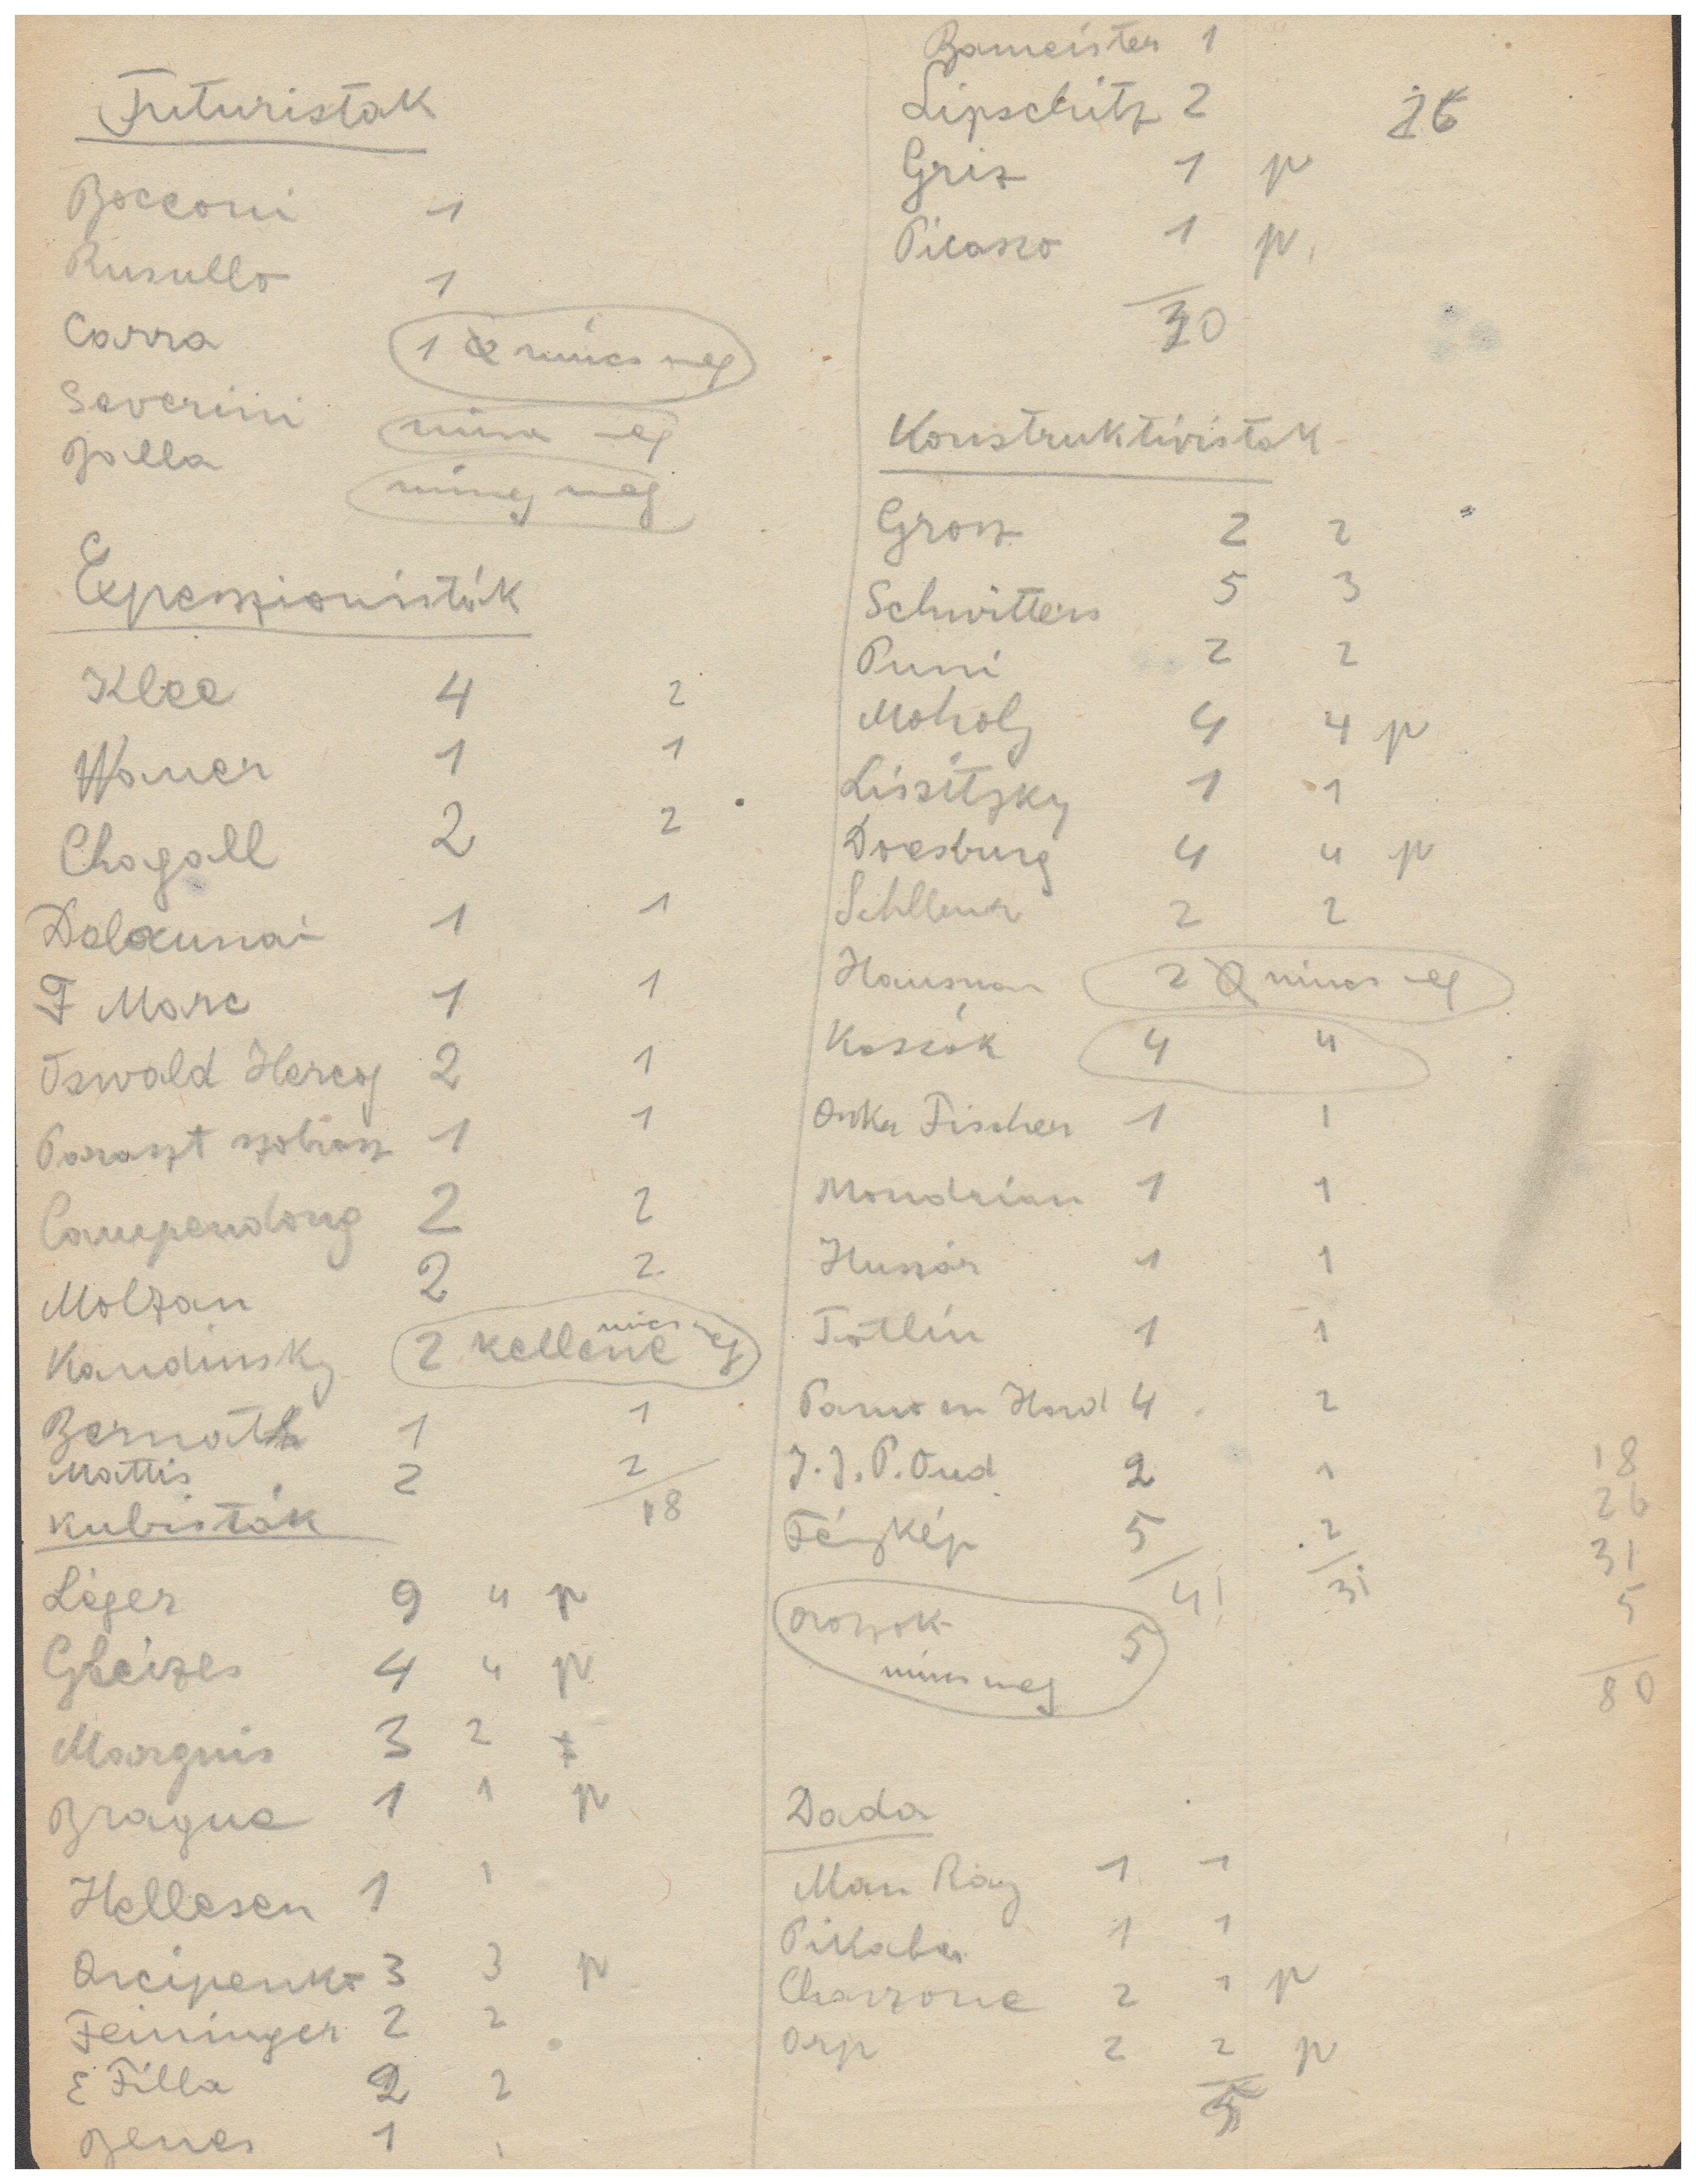 Futuristak
Bocconi 1
Rusullo 1
Carra 1 nincs meg
Severini nincs meg
Balla nincs meg
Expeszionisták
Klee 4 2
Wauer 1 1
Chagall 2 2
Delaunai 1 1
F Marc 1 1
Oswald Herzog 2 1
Paraszt szobrász 1 1
Campendong 2 2
Molzan 2 2
Kandinsky 2 kellene nincs meg
Bernath 1 1
Mattis 2 2
18
Kubisták
Léger 9 4 p
Gleizes 4 4 p
Marquis 3 2
Braque 1 1 p
Hellesen 1 1
Arcipenko 3 3 p
Feininger 2 2
E Filla 2 2
Benes 1 1
Bameister 1
Lipschitz 2 26
Griz 1 p
Picasso 1 p.
30
Konstruktivistak
Grosz 2 2
Schwitters 5 3
Puni 2 2
Moholy 4 4 p
Lissitzky 1 1
Doesburg 4 4 p
2 2
Hausman 2 nincs meg
Kassák 4 4
Oska Fischer 1 1
Mondrian 1 1
Huszár 1 1
Tatlin 1 1
4 2
J. J. P. Oud 2 1
Fénykép 5 2
41 31
Oroszok 5
nincs meg
18
26
31
5
80
Dada
Man Ray 1 1
Pikabia 1 1
Charzone 2 1 p
Arp 2 2 p
5